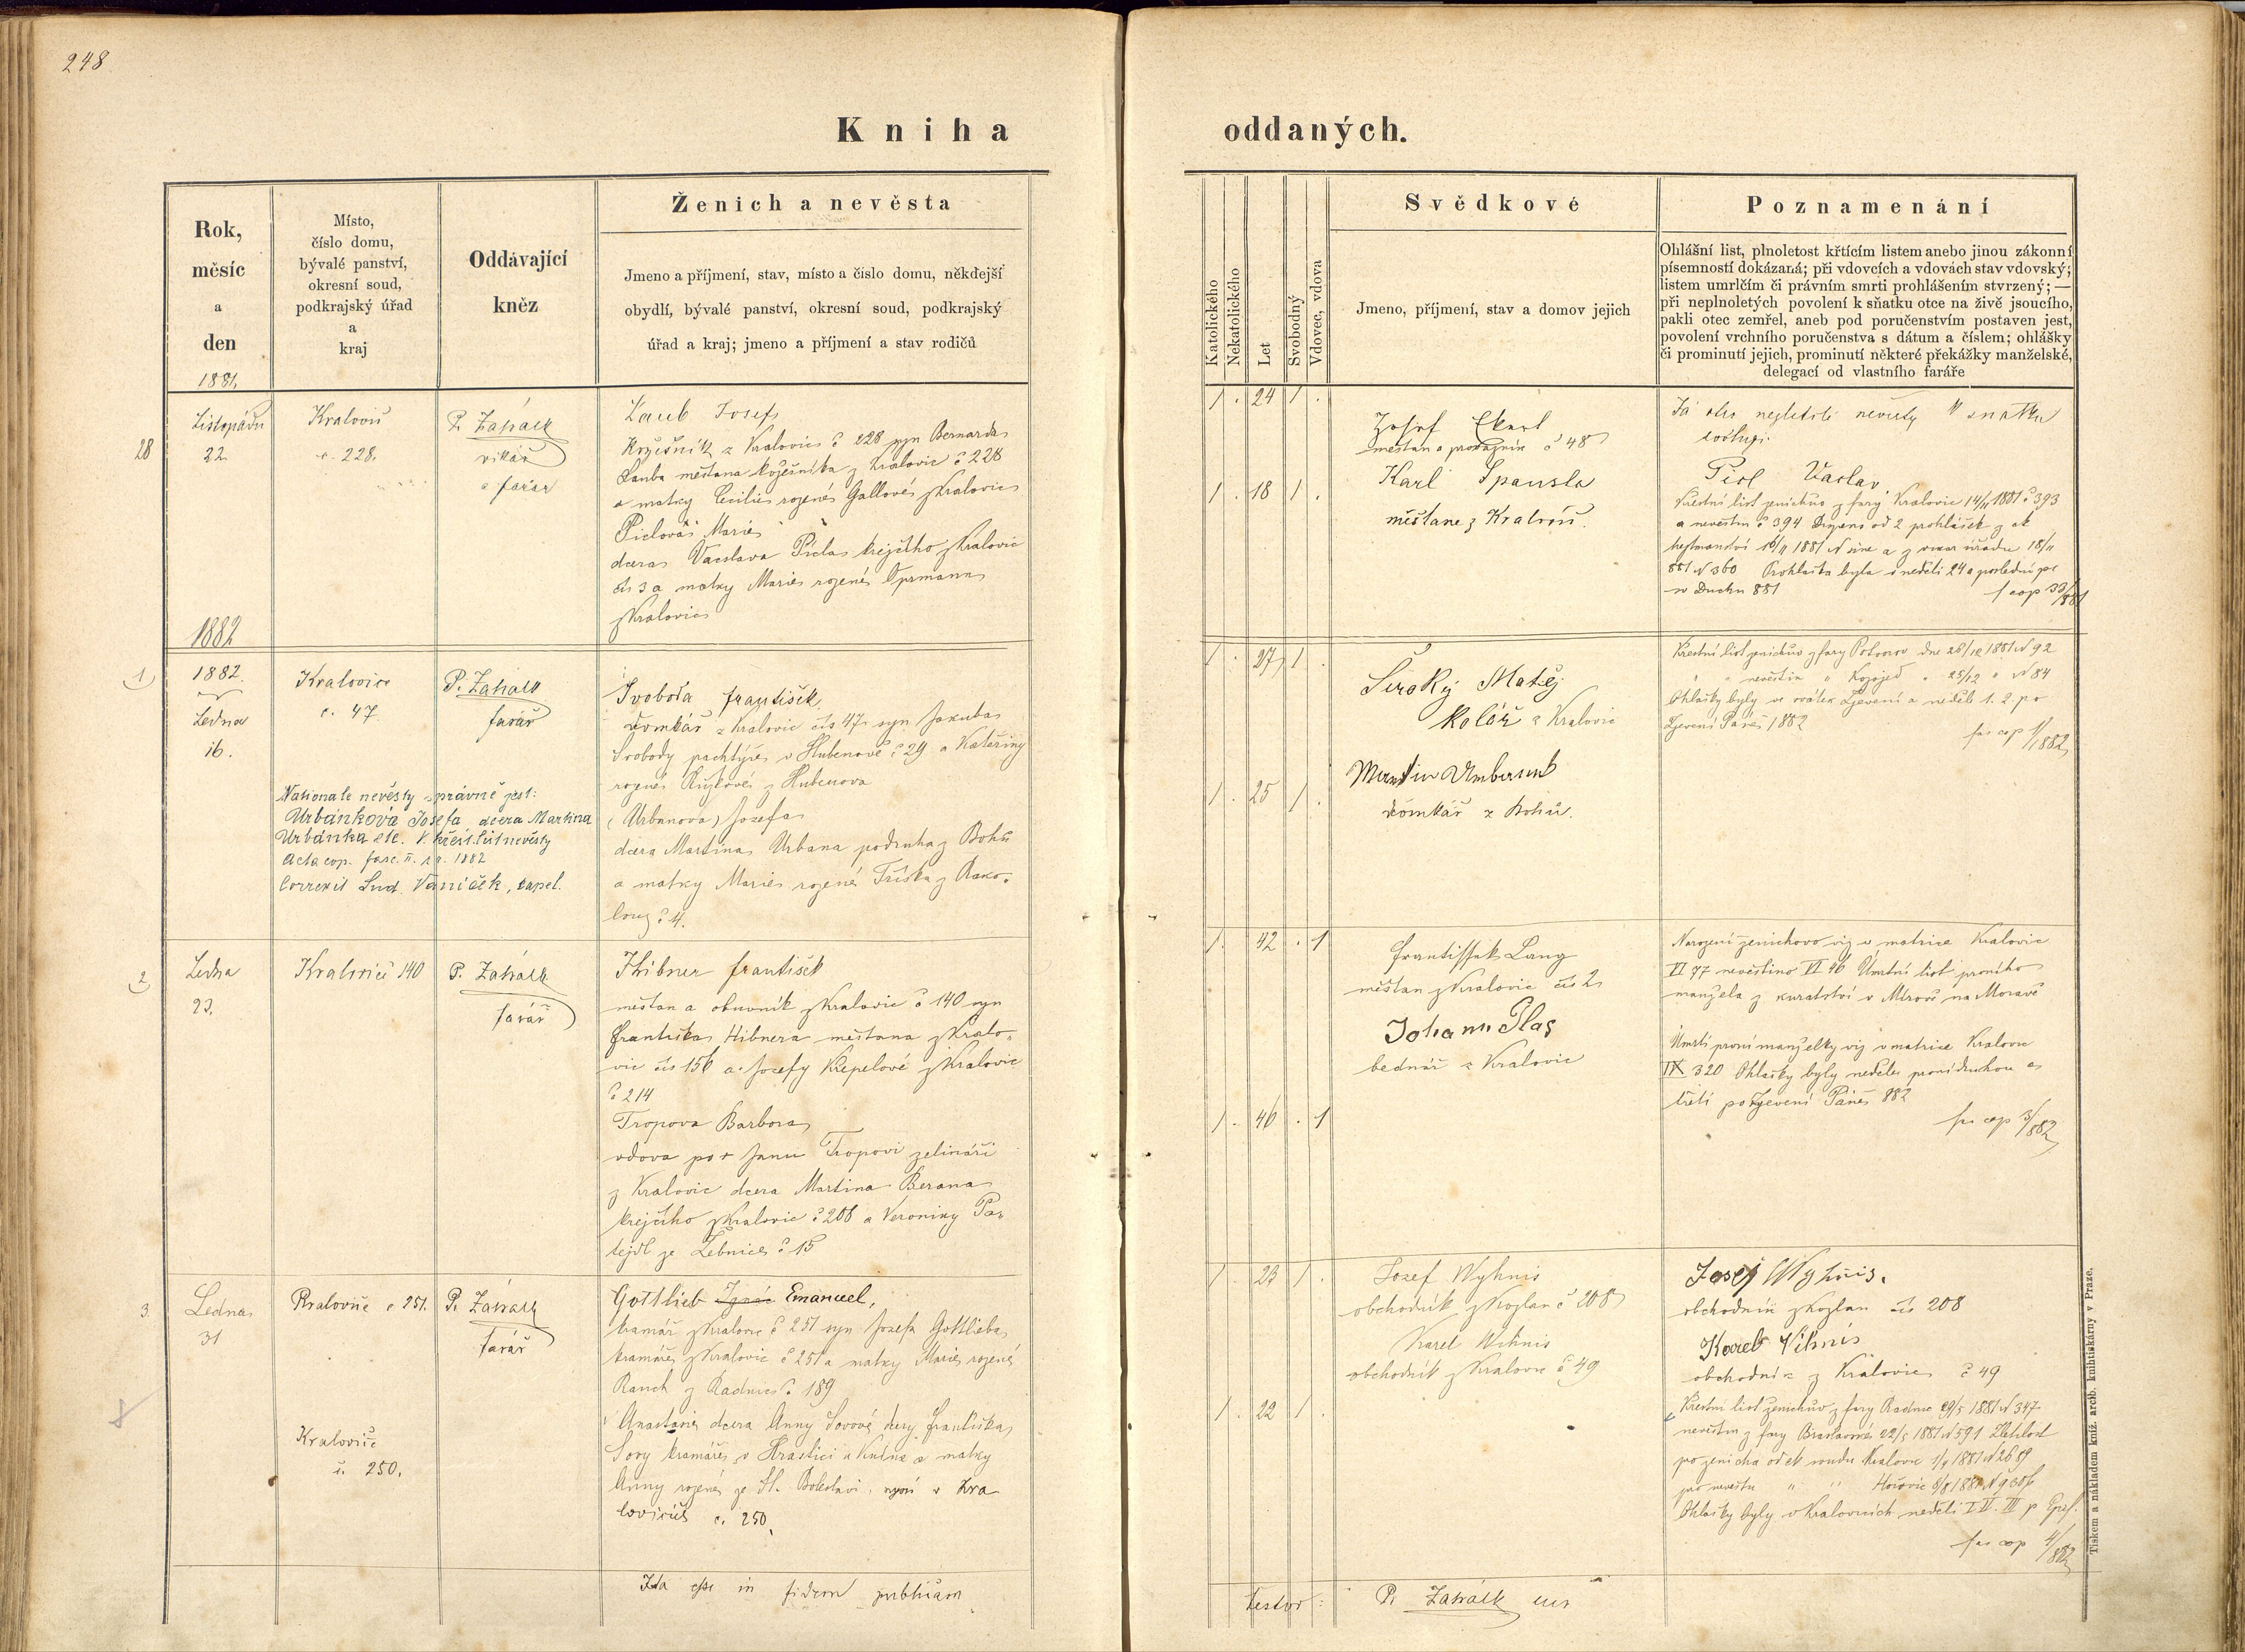 248
Kniha
oddaných.
Rok,
měsíc
a
den
1881.
Místo,
číslo domu,
bývalé panství,
okresní soud,
podkrajský úřad
a
kraj
Oddávající
kněz
Ženich a nevěsta
Jmeno a příjmení, stav, místo a číslo domu, někdejší
obydlí, bývalé panství, okresní soud, podkrajský
úřad a kraj; jmeno a příjmení a stav rodičů
Katolického
Nekatolického
Let
Svobodný
Vdovec, vdova
Svědkové
Jmeno, příjmení, stav a domov jejich
Poznamenání
Ohlášní list, plnoletost křtícím listem anebo jinou zákonní
písemností dokázaná; při vdovcích a vdovách stav vdovský;
listem umrlčím či právním smrti prohlášením stvrzený; —
při neplnoletých povolení k sňatku otce na živě jsoucího,
pakli otec zemřel, aneb pod poručenstvím postaven jest,
povolení vrchního poručenstva s dátum a číslem; ohlášky
či prominutí jejich, prominutí některé překážky manželské,
delegací od vlastního faráře
28
Listopadu
22
Kralovic
č. 228.
P. Zahálk
vikář
a farář
Laub Josef
Kožešník z Kralovic č 228 syn Bernarda
Lauba měštana kožešníka z Kralovic č 228
a matky Cecilie rozené Gallové z Kralovic
Piclova Marie
dcera Vacslava Picla krejčího z Kralovic
čís 3 a matky Marie rozené
z Kralovic
1 . 24 1 .
1 . 18 1 .
Josef Ekert
měštan a č 48
Karl Spausta
měštane z Kralovic.
Já otec nezletilé nevěsty k sňatku
svoluji.
Picl Vaclav
Křestní list ženichův z fary Kralovic 14/11 1881 č 393
a nevěstin č 394 od 2 prohlášek z ok
hejtmanství 16/11 1881 a z vikar úřadu 18/11
881 N 360 Prohláška byla v neděli 24 a poslední po
sv Duchu 881
f cop 33/881
1882
1
1882.
Ledna
16.
Kralovice
č. 47
P. Zahálk
farář
Svoboda František,
domkář z Kralovic čís 47 syn Jakuba
Svobody pachtýře v Hubenově č 29 a Kateřiny
rozené z Hubenova
(Urbanova) Josefa
dcera Martina Urbana podruha z Bohů
a matky Marie rozené Tříska z Rako-
louz č 4.
Nationale nevěsty správně jest:
Urbánková Josefa dcera Martina
Urbánka etc. V. křest. list nevěsty
Acta cop. fasc. II. 1882
Correxit Lud. Vaníček, capel.
1 . 27 1 .
1 . 25 1 .
Široký Matěj
Kolář z Kralovic
Martin
domkář z Bohů.
Křestní list ženichův z fary Potvorov dne 26/12 1881 N 92
" " nevěstin " Kozojed " 25/12 " N 84
Ohlášky byly ve svátek Zjevení a neděle 1. 2. po
Zjevení Páně 1882
fas cop 1/1882
2
Ledna
23.
Kralovic č 140
P. Zahálk
farář
Hibner František
měštan a obuvník z Kralovic č 140 syn
Františka Hibnera měštana z Kralo-
vic čís 156 a Josefy Křepelové z Kralovic
č 214
Tropova Barbora
vdova po + Janu Tropovi zelináři
z Kralovic dcera Martina Berana
krejčího z Kralovic č 208 a Veroniky Pa-
tejdl ze Žebnice č 15
1. 42 . 1
1 . 46 . 1
Frantissek Lang
měštan z Kralovic čís 2
Johann Plas
bednář z Kralovic
Narození ženichovo viz v matrice Kralovic
VI 77 nevěstino VI 46 Úmrtní list prvního
manžela z kuratství v Mírově na Moravě
Úmrtí první manželky viz v matrice Kralovic
IX 320 Ohlášky byly neděle první druhou a
třetí po Zjevení Páně 882
fas cop 3/882
3.
Ledna
31
Kralovice č 251.
P. Zahálk
farář
Gottlieb Ignác Emanuel,
kramář z Kralovic č 251 syn Josefa Gottlieba
kramáře z Kralovic č 251 a matky Marie rozené
Rauch z Radnic č 189
Anastasie dcera Anny Sovové dcery Františka
Sovy kramáře v Hrastici u Knína a matky
Anny rozené ze St. Boleslavi, nyní v Kra-
lovicích č. 250.
Kralovic
č. 250.
1 . 23 1 .
1 . 22 1 .
Josef Wyhnis
obchodník z Kozlan č 208
Karel Wihnis
obchodník z Kralovic č 49
Josef Wyhnis.
obchodník z Kozlan čís 208
Karel Vihnis
obchodník z Kralovic č 49
Křestní list ženichův z fary Radnic 29/5 1881 N 347
nevěstin z fary 22/5 1881 N 591
po ženicha od ok soudu Kralovic 1/9 1881 N 2689
pro nevěstu " " Hořovic
Ohlášky byly v Kralovicích neděli I II. III p Epif.
fas cop 4/882
Ita esse in fidem publicam
testor:
P. Zahálk
Tiskem a nákladem kníž. arcib. knihtiskárny v Praze.